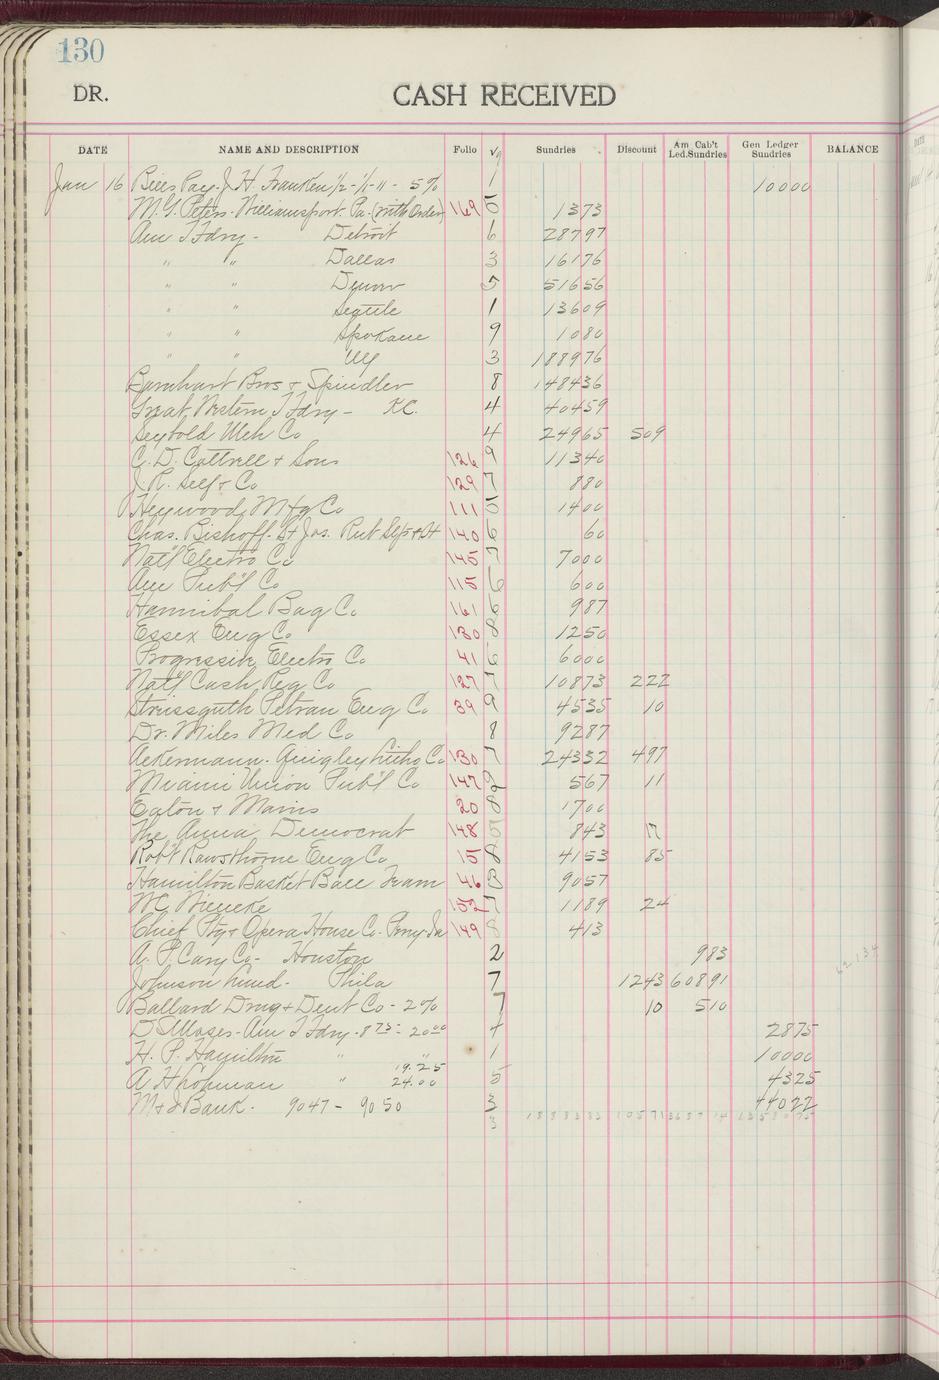 130
DR. CASH RECEIVED
DATE NAME AND DESCRIPTION Folio v9 Sundries Discount Am Cab't Led.Sundries Gen Ledger Sundries BALANCE
Jan 16 Bills Pay. J. H. Franken 1/2 - 1-11 - 5% 1 10000
M. G. Peters - Williamsport. Pa. (with Order) 169 5 1373
Am T Fdry - Detroit 6 28797
" " Dallas 3 16176
" " Denver 5 51656
" " Seattle 1 13609
" " Spokane 9 1080
" " 3 188976
Barnhart Bros & Spindler 8 148436
Great Western T Fdry - K.C. 4 40459
Seybold Mch Co 4 24965 509
C. D. Cottrell & Sons 126 9 11340
J. R. Self & Co 129 7 880
Heywood Mfg Co 111 5 1400
Chas. Bischoff. St Jos. 140 6 60
Nat'l Electro Co 145 7 7000
Am Pub'l Co 115 6 600
Hannibal Bag Co 161 6 987
Essex Eng Co 130 8 1250
Progressive Electro Co 41 6 6000
Nat'l Cash Reg Co 127 7 10873 222
Streissguth Petran Eng Co 39 9 4535 10
Dr. Miles Med Co 8 9287
Ackermann. Quigley Litho Co 130 7 24332 497
Miami Union Pub'l Co 147 9 567 11
Eaton & Mains 20 8 1700
The Anna Democrat 148 5 843 17
Rob't Rawsthorne Eng Co 15 8 4153 85
Hamilton Basket Ball Team 46 3 9057
W.C. Wieneke 152 7 1189 24
Chief Ptg & Opera House Co. Perry Ia 149 8 413
A. P. Cary Co - Houston 2 983
Johnson Phila 7 1243 60891
Ballard Drug & Dent Co - 2% 7 10 510
D. Moses - Am T Fdry - 8 75 - 20 00 4 2875
H. P. Hamilton " " 1 10000
19.25
A H Lohman " 24.00 5 4325
M & J Bank. 9047 - 9050 3 44022
3